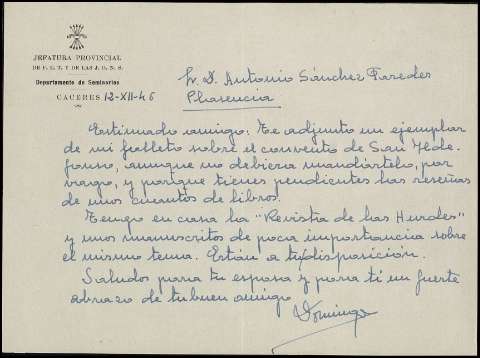 JEFATURA PROVINCIAL
DE F. E. T. Y DE LAS J. O. N. S.
Departamento de Seminarios
CACERES 12-XII-46
Sr. D. Antonio Sánchez Paredes
Plasencia
Estimado amigo: Te adjunto un ejemplar
de mi folleto sobre el convento de San Ilde-
fonso, aunque no debiera mandártelo, por
vago, y porque tienes pendientes las reseñas
de unos cuantos de libros.
Tengo en casa la "Revista de las Hurdes"
y unos manuscritos de poca importancia sobre
el mismo tema. Están a tu disposición.
Saludos para tu esposa y para ti un fuerte
abrazo de tu buen amigo
Domingo